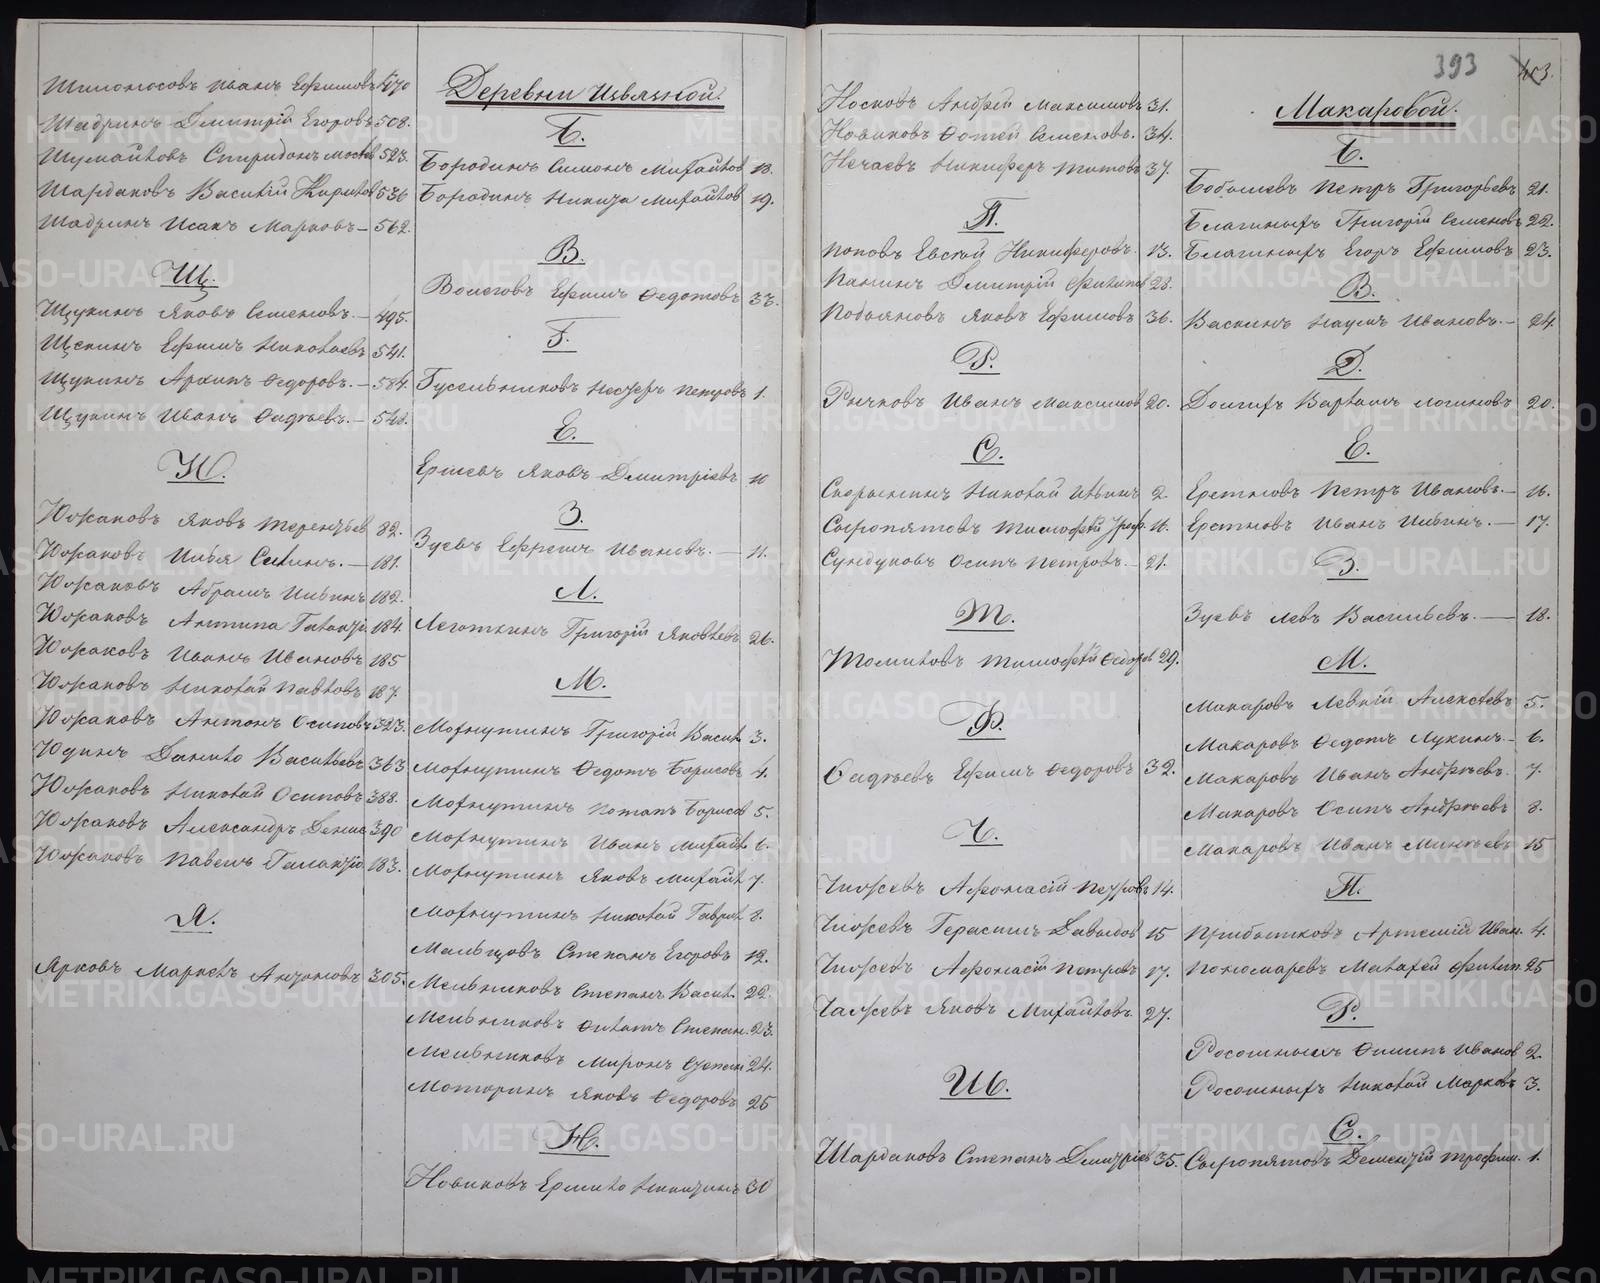 Шипоносовъ Иванъ Ефимовъ 470
Шадринъ Дмитрій Егоровъ 508.
Шумайловъ Спиридонъ 523.
Шардаковъ Василій Кирилов 536
Шадринъ Исакъ Марковъ — 562.
Щ.
Щукинъ Яковъ Семеновъ. — 495.
Щекинъ Ефимъ Николаевъ 541.
Щукинъ Архипъ Ѳедоровъ. — 584.
Щукинъ Иванъ Ѳадѣевъ. — 548.
Ю.
Южаковъ Яковъ Терентьев 82.
Южаковъ Илья Силинъ. — 181.
Южаковъ Абрамъ Ильинъ 182.
Южаковъ Антипа Галактіо. 184.
Южаковъ Иванъ Ивановъ 185
Южаковъ Николай Павловъ 187.
Южаковъ Антонъ Осиповъ 323.
Юдинъ Данило Васильевъ 363
Южаковъ Николай Осиповъ 388.
Южаковъ Александръ Денис 390
Южаковъ Павелъ Галактіо 183.
Я.
Ярковъ Маркелъ Антоновъ 305.
Деревни Ивлякой.
Б.
Бородинъ Симонъ Михайлов 18.
Бородинъ Никита Михайлов 19.
В.
Вологовъ Ефимъ Ѳедотовъ 33.
Г.
Гусельниковъ Несторъ Петровъ 1.
Е.
Ершевъ Яковъ Дмитріевъ 10
З.
Зуевъ Ефремъ Ивановъ. — 11.
Л.
Леготкинъ Григорій Яковлевъ 26.
М.
Мохнуткинъ Григорій Васил. 3.
Мохнуткинъ Ѳедотъ Борисовъ 4.
Мохнуткинъ Потапъ Борисов 5.
Мохнуткинъ Иванъ Михайл. 6.
Мохнуткинъ Яковъ Михайл 7.
Мохнуткинъ Николай Гаврил. 8.
Мальцовъ Степанъ Егоровъ 12.
Мельниковъ Степанъ Васил. 22.
Мельниковъ Филатъ Степан. 23.
Мельниковъ Миронъ Степан 24.
Моторинъ Яковъ Ѳедоровъ 25
Н.
Новиковъ Ермило Никитинъ 30
393 403.
Носковъ Андрей Максимовъ 31.
Новиковъ Фотей Семеновъ. 34.
Нечаевъ Никифоръ Титовъ 37.
П.
Поповъ Евсѣй Никифоровъ. 13.
Панинъ Дмитрій Филипов 28.
Подояновъ Яковъ Ефимовъ 36.
Р.
Рычковъ Иванъ Максимов 20.
С.
Скорынинъ Николай Ильинъ 2.
Сыропятовъ Тимофей 16.
Сундуковъ Осипъ Петровъ. — 21.
Т.
Томиловъ Тимофей Ѳедоров 29.
Ф.
Ѳадѣевъ Ефимъ Ѳедоровъ 32.
Ч.
Чижевъ Афонасій Петровъ 14.
Чижевъ Герасимъ Давыдов 15
Чижевъ Афонасій Петровъ 17.
Чижевъ Яковъ Михайловъ. 27.
Ш.
Шардаковъ Степанъ Дмитріев 35.
Макаровой.
Б.
Бобошевъ Петръ Григорьевъ 21.
Благиныхъ Григорій Семеновъ 22.
Благиныхъ Егоръ Ефимовъ 23.
В.
Васкинъ Наумъ Ивановъ. — 24.
Д.
Долгихъ Варламъ Логиновъ 20.
Е.
Еретновъ Петръ Ивановъ. — 16.
Еретновъ Иванъ Ильинъ. — 17.
З.
Зуевъ Левъ Васильевъ. — 18.
М.
Макаровъ Левкій Алексѣевъ 5.
Макаровъ Ѳедотъ Лукинъ. — 6.
Макаровъ Иванъ Андрѣевъ. 7.
Макаровъ Осипъ Андрѣевъ 8.
Макаровъ Иванъ Минѣевъ 15
П.
Прибытковъ Артемій Иван. 4.
Пономаревъ Макарей Филип. 25
Р.
Росошныхъ Филипъ Иванов 2.
Росошныхъ Николай Марковъ 3.
С.
Сыропятовъ Дементій Трофим. 1.